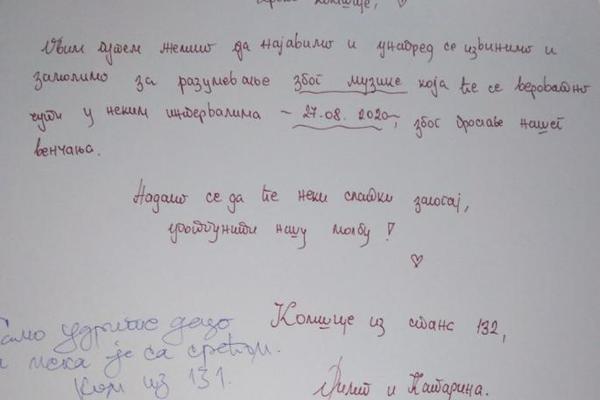 Драге комшије, ♡
Овим путем желимо да најавимо и унапред се извинимо и
замолимо за разумевање због музике која ће се вероватно
чути у неким интервалима ~ 27.08.2020~, због прославе нашег
венчања.
Надамо се да ће неки слатки залогај,
употпунити нашу молбу!
♡
Комшије из стана 132,
Филип и Катарина.
Само удрите децо
и нека је са срећом.
Ком из 131.